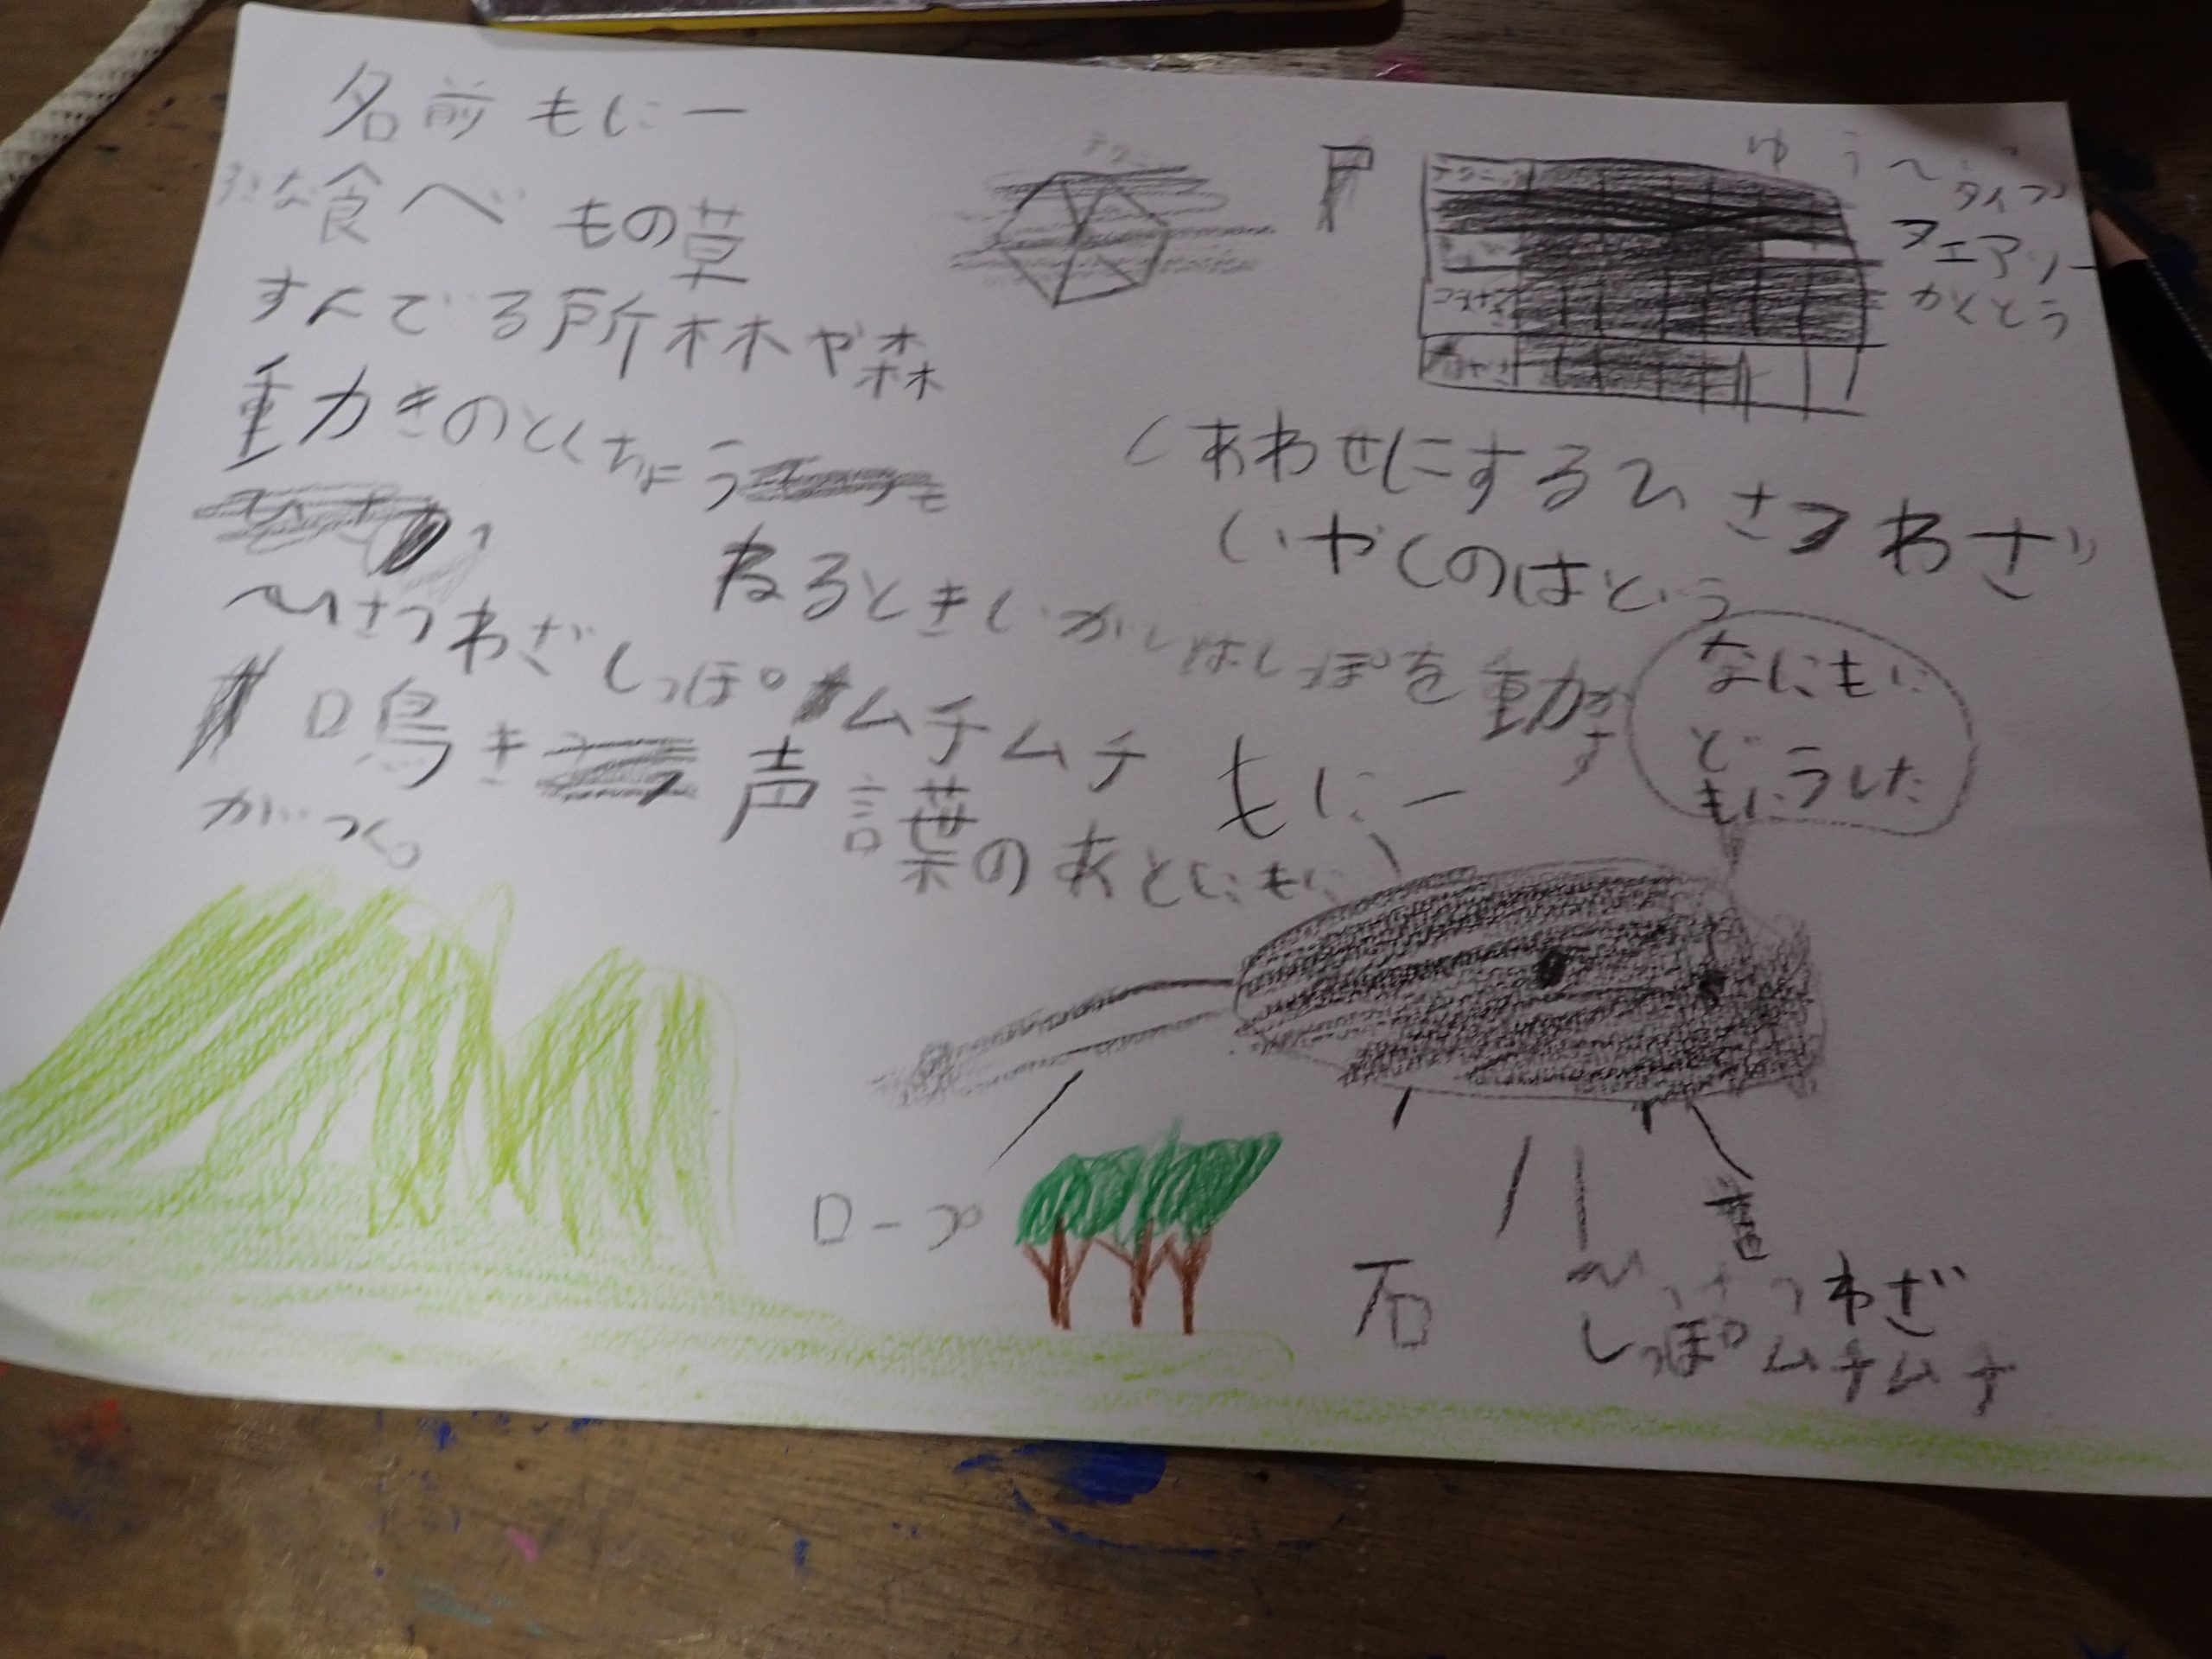 名前 もにー
すきな食べもの草
すんでる所林や森
動きのとくちょう
ねるときいがいはしっぽを動かす
ひさつわざしっぽムチムチ
鳴き声 言葉のあとにもに
がつく。
ゆうへい
タイプ
フェアリー
かくとう
しあわせにするひさつわざ
いやしのはどう
なにもに
どうした
もに
もにー
ロープ
石
ひっさつわざ
しっぽムチムチ